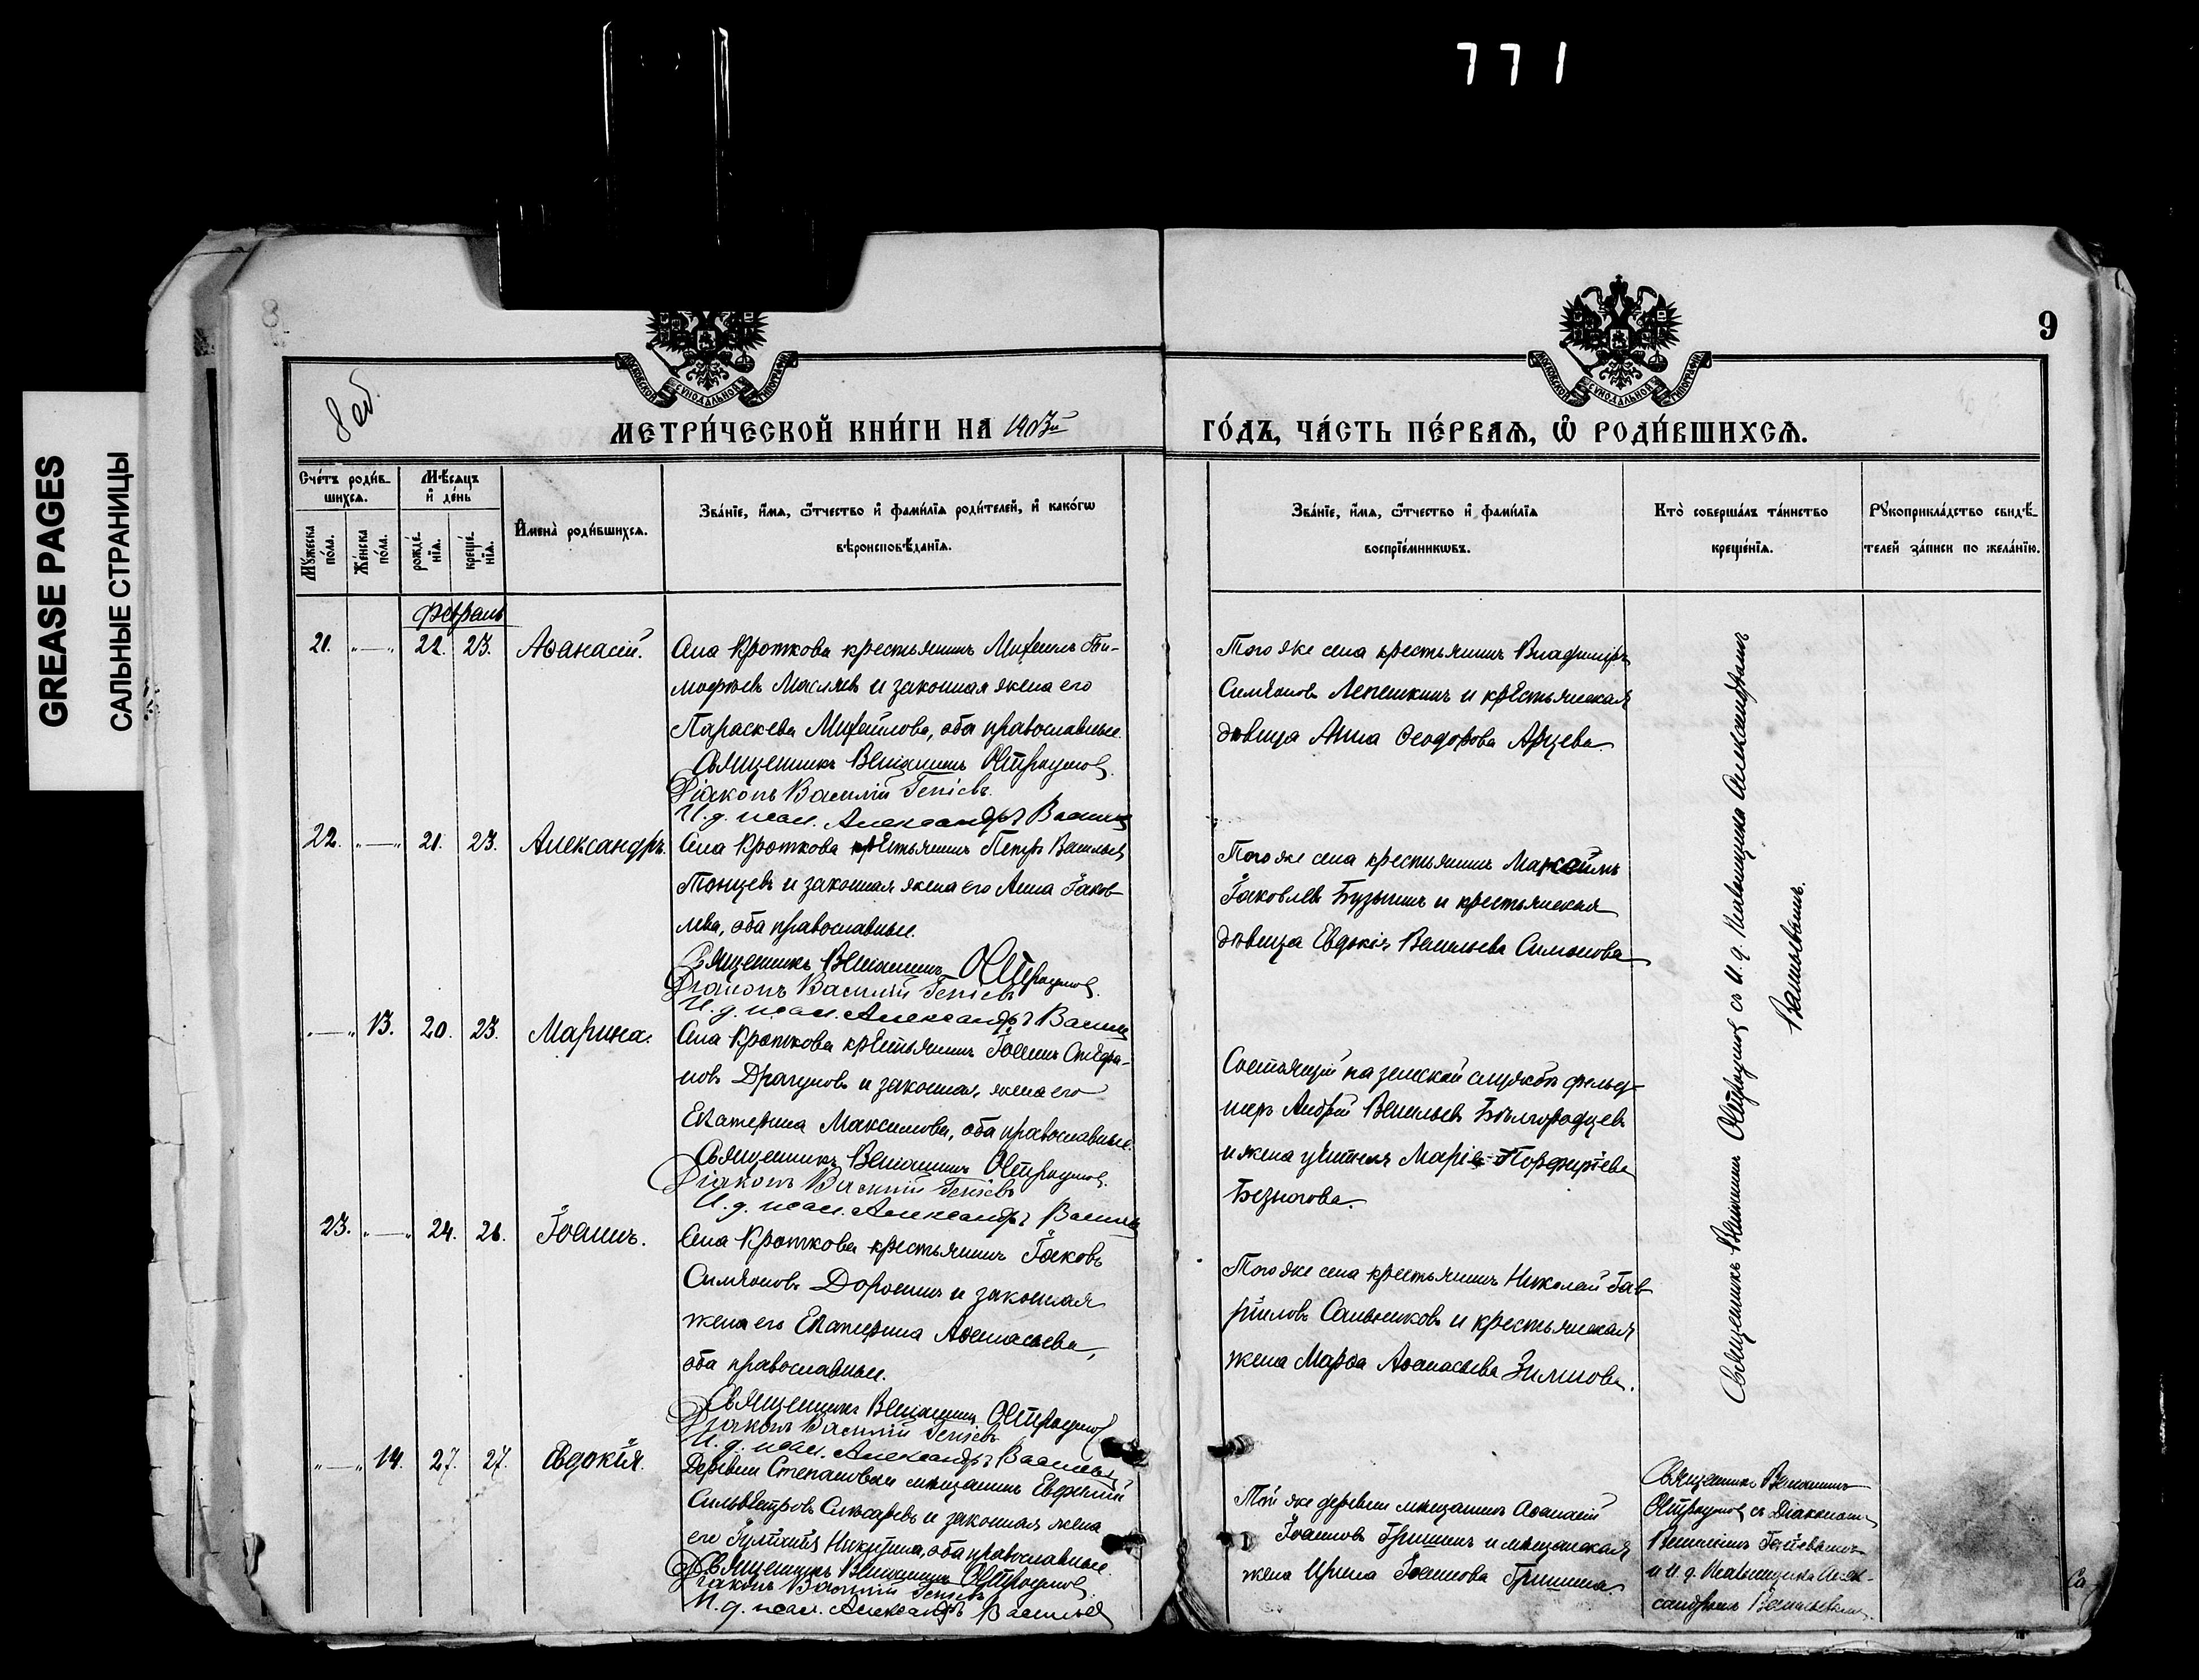 771
GREASE PAGES
САЛЬНЫЕ СТРАНИЦЫ
8
9
8 об.
МОСКОВСКОЙ СѴНОДАЛЬНОЙ ТИПОГРАФІИ
МОСКОВСКОЙ СѴНОДАЛЬНОЙ ТИПОГРАФІИ
МЕТРИ́ЧЕСКОЙ КНИ́ГИ НА 1903й
ГО́ДЪ, ЧА́СТЬ ПЕ́РВАѦ, Ѡ҆ РОДИ́ВШИХСѦ.
Сче́тъ роди́в-
шихсѧ.
Мꙋ́жеска по́ла.
Же́нска по́ла.
Мѣ́сѧцъ
и҆ де́нь
рожде́нїѧ.
креще́нїѧ.
И҆мена̀ роди́вшихсѧ.
Зва́нїе, и҆́мѧ, ѻ҆́тчество и҆ фами́лїѧ роди́телей, и҆ како́гѡ
вѣроисповѣ́данїѧ.
Зва́нїе, и҆́мѧ, ѻ҆́тчество и҆ фами́лїѧ
воспрїе́мникѡвъ.
Кто̀ соверша́лъ та́инство
креще́нїѧ.
Рꙋкоприкла́дство свидѣ́-
телей за́писи по жела́нїю.
Февраль
21. "—" 22. 23. Аѳанасій.
Села Кроткова крестьянинъ Михаилъ Ти-
мофѣевъ Масляевъ и законная жена его
Параскева Михаилова, оба православные.
Священникъ Веніаминъ Остроумов
Діаконъ Василій Геніевъ.
И. д. псал. Александръ Васильев
Того же села крестьянинъ Владиміръ
Симеоновъ Лепешкинъ и крестьянская
дѣвица Анна Ѳеодорова Арцева.
22. "—" 21. 23. Александръ.
Села Кроткова крестьянинъ Петръ Васильев
Танцевъ и законная жена его Анна Іаков-
лева, оба православные.
Священникъ Веніаминъ Остроумов.
Діаконъ Василій Геніевъ
И. д. псал. Александръ Васильев
Того же села крестьянинъ Максимъ
Іаковлевъ Бузынинъ и крестьянская
дѣвица Евдокія Васильева Симонова
"—" 13. 20. 23. Марина.
Села Кроткова крестьянинъ Іоаннъ Стефа-
новъ Драгуновъ и законная жена его
Екатерина Максимова, оба православные.
Священникъ Веніаминъ Остроумов.
Діаконъ Василій Геніевъ
И. д. псал. Александръ Васильев
Состоящій на земской службѣ фельд-
шеръ Андрей Васильевъ Бѣлгородцевъ
и жена учителя Марія Порфиріева
Безногова.
23. "—" 24. 26. Іоаннъ.
Села Кроткова крестьянинъ Іаковъ
Симеоновъ Доронинъ и законная
жена его Екатерина Аѳанасьева,
оба православные.
Священникъ Веніаминъ Остроумов
Діаконъ Василій Геніевъ
И. д. псал. Александръ Васильев
Того же села крестьянинъ Николай Гав-
ріиловъ Сальниковъ и крестьянская
жена Марѳа Аѳанасьева Зимнова.
"—" 14. 27. 27. Евдокія.
Деревни Степановки мѣщанинъ Евфимій
Сильвестровъ Слесаревъ и законная жена
его Іулиттія Никитина, оба православные.
Священникъ Веніаминъ Остроумов
Діаконъ Василій Геніевъ
И. д. псал. Александръ Васильев
Той же деревни мѣщанинъ Аѳанасій
Іоанновъ Гришинъ и мѣщанская
жена Ирина Іоаннова Гришина.
Священникъ Веніаминъ Остроумов съ И. д. Псаломщика Александромъ
Васильевымъ.
Священникъ Веніаминъ
Остроумов съ Діакономъ
Василіемъ Геніевымъ
и И. д. Псаломщика Алек-
сандромъ Васильевымъ.